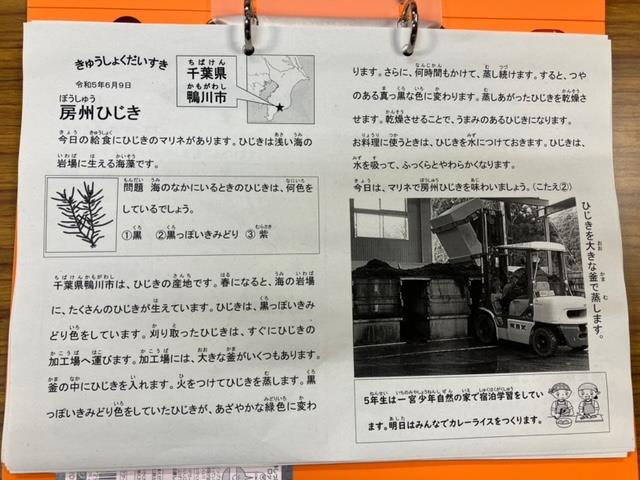 きゅうしょくだいすき
令和5年6月9日
房州ひじき
千葉県
鴨川市
今日の給食にひじきのマリネがあります。ひじきは浅い海の
岩場に生える海藻です。
問題 海のなかにいるときのひじきは、何色を
しているでしょう。
①黒 ②黒っぽいきみどり ③紫
千葉県鴨川市は、ひじきの産地です。春になると、海の岩場
に、たくさんのひじきが生えています。ひじきは、黒っぽいきみ
どり色をしています。刈り取ったひじきは、すぐにひじきの
加工場へ運びます。加工場には、大きな釜がいくつもあります。
釜の中にひじきを入れます。火をつけてひじきを蒸します。黒
っぽいきみどり色をしていたひじきが、あざやかな緑色に変わ
ります。さらに、何時間もかけて、蒸し続けます。すると、つや
のある真っ黒な色に変わります。蒸しあがったひじきを乾燥さ
せます。乾燥させることで、うまみのあるひじきになります。
お料理に使うときは、ひじきを水につけておきます。ひじきは、
水を吸って、ふっくらとやわらかくなります。
今日は、マリネで房州ひじきを味わいましょう。(こたえ②)
ひじきを大きな釜で蒸します。
5年生は一宮少年自然の家で宿泊学習をしてい
ます。明日はみんなでカレーライスをつくります。